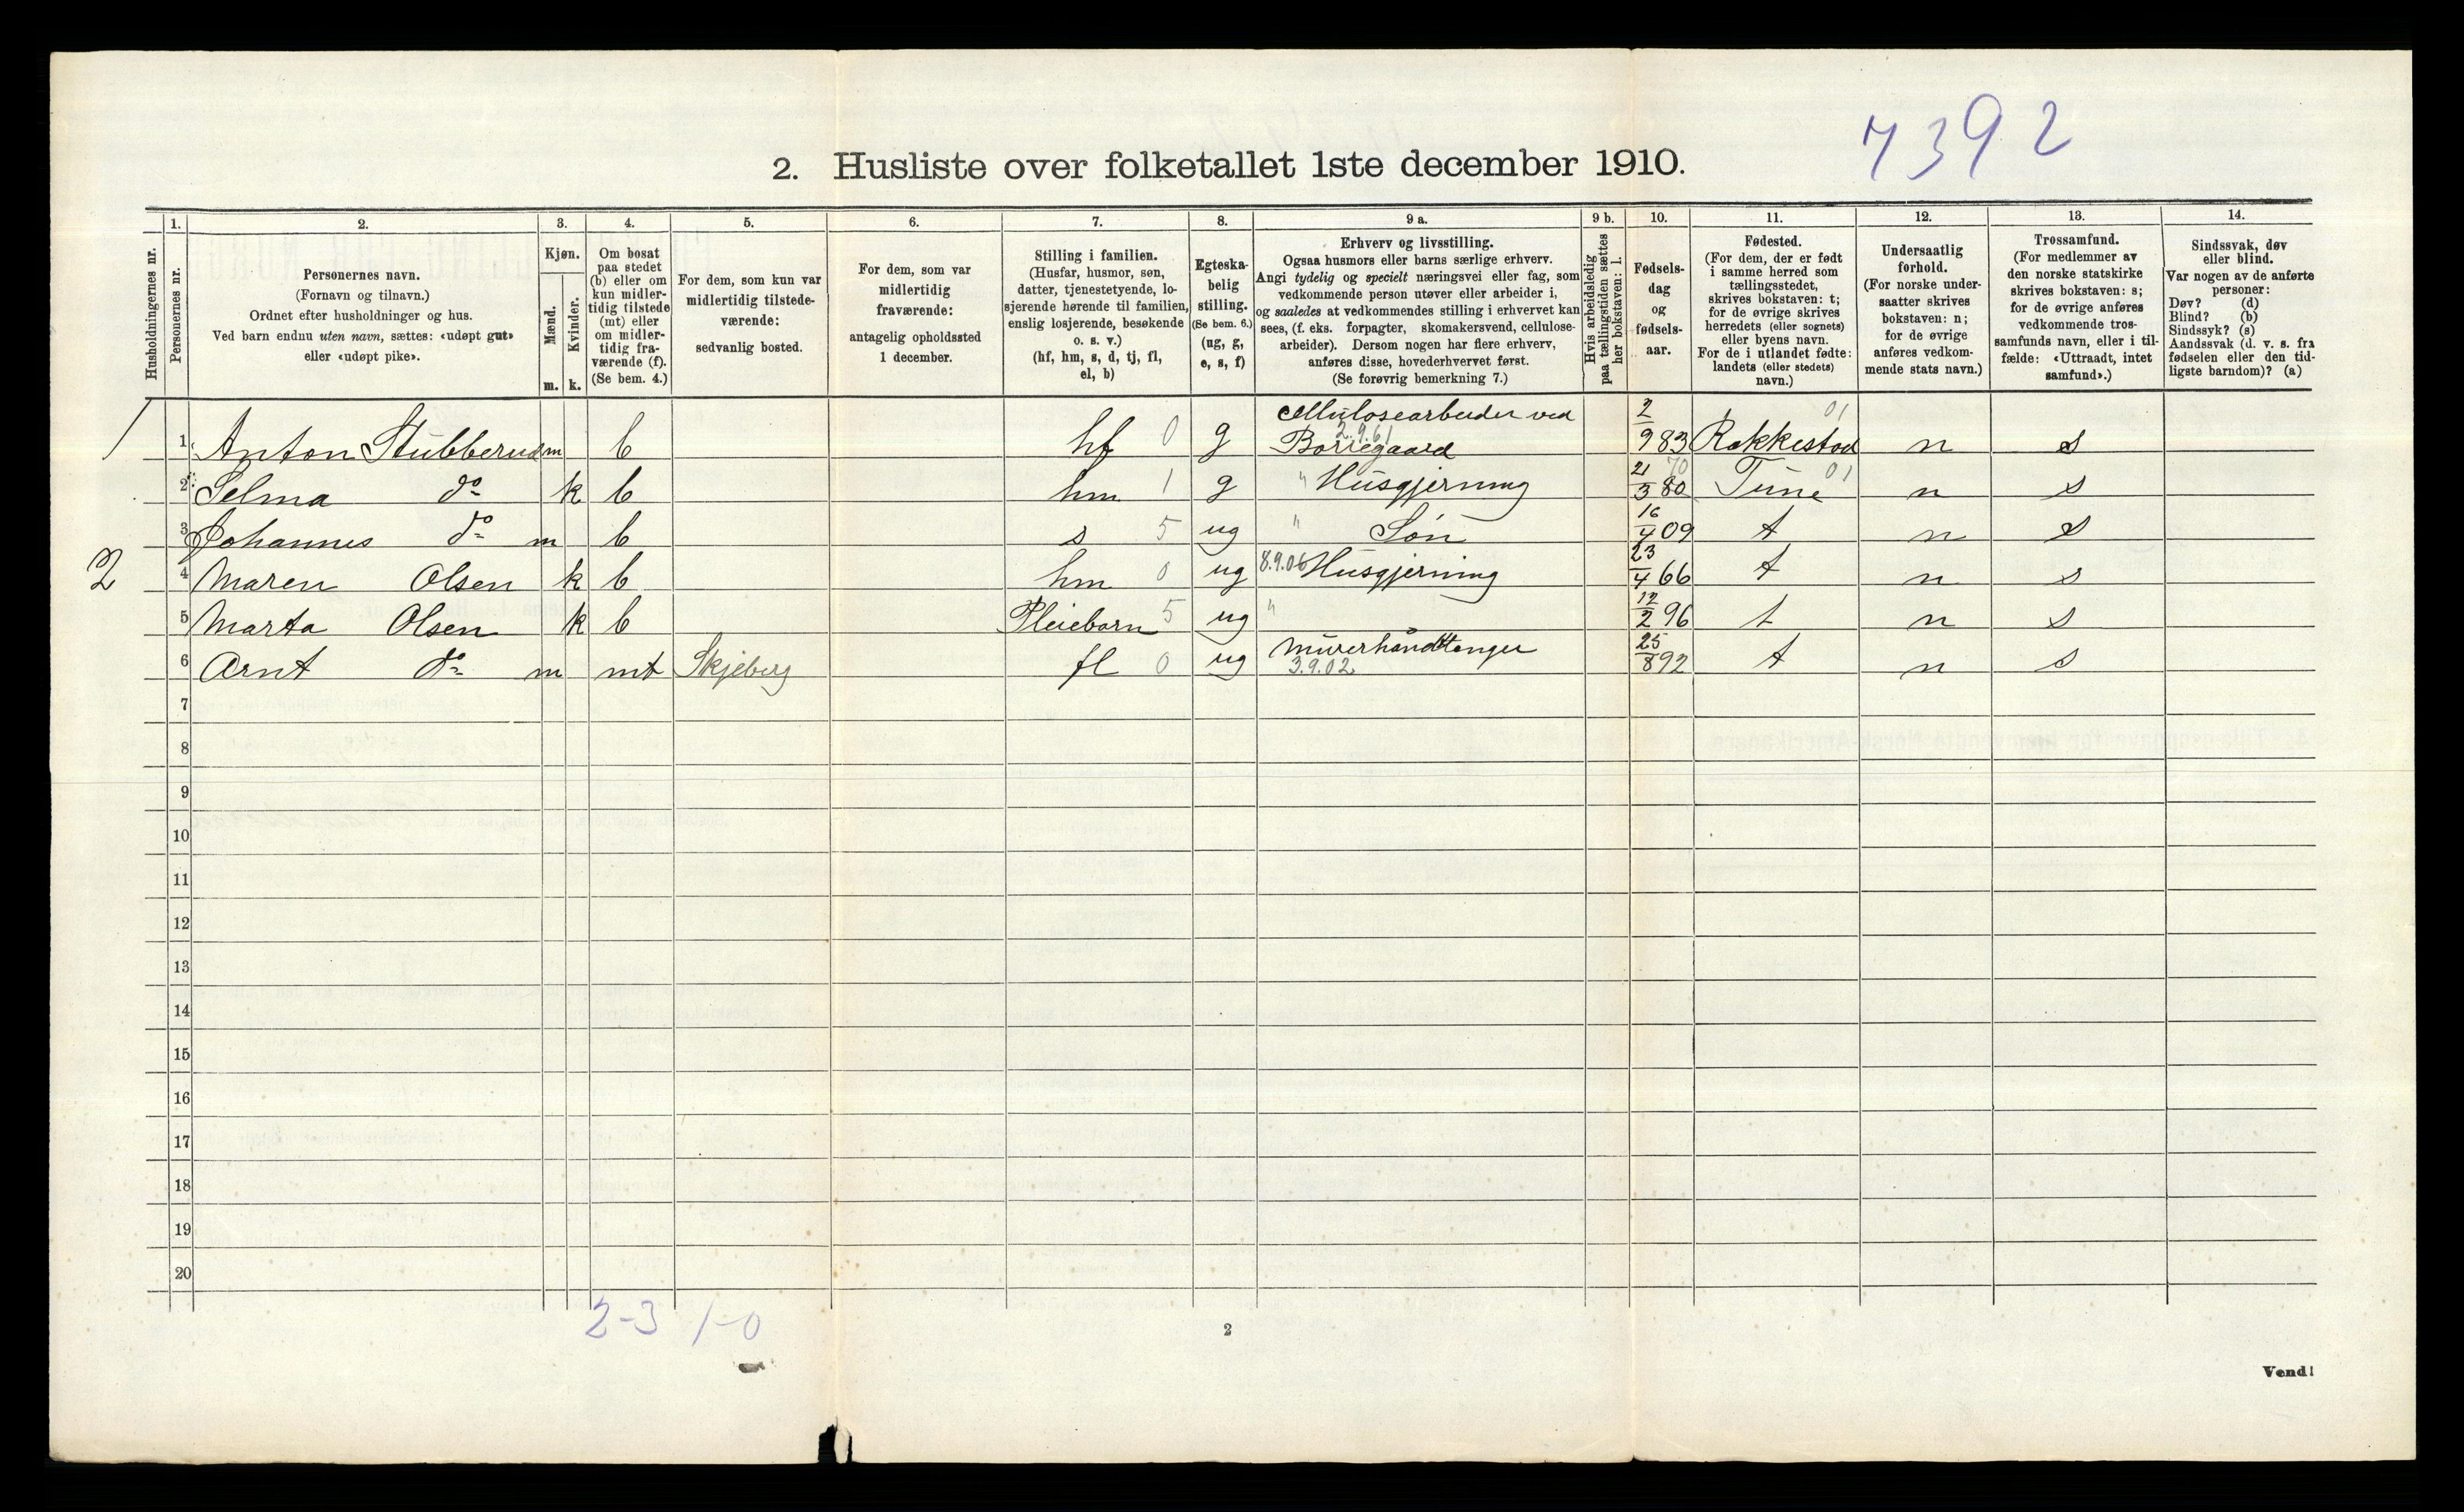 7392
2. Husliste over folketallet 1ste december 1910.
Husholdningernes nr.
1.
Personernes nr.
2.
Personernes navn.
(Fornavn og tilnavn.)
Ordnet efter husholdninger og hus.
Ved barn endnu uten navn, sættes: «udøpt gut»
eller «udøpt pike».
3.
Kjøn.
Mænd.
m.
Kvinder.
k.
4.
Om bosat
paa stedet
(b) eller om
kun midler-
tidig tilstede
(mt) eller
om midler-
tidig fra-
værende (f).
(Se bem. 4.)
5.
For dem, som kun var
midlertidig tilstede-
værende:
sedvanlig bosted.
6.
For dem, som var
midlertidig
fraværende:
antagelig opholdssted
1 december.
7.
Stilling i familien.
(Husfar, husmor, søn,
datter, tjenestetyende, lo-
sjerende hørende til familien,
enslig losjerende, besøkende
o. s. v.)
(hf, hm, s, d, tj, fl,
el, b)
8.
Egteska-
belig
stilling.
(Se bem. 6.)
(ug, g,
e, s, f)
9 a.
Erhverv og livsstilling.
Ogsaa husmors eller barns særlige erhverv.
Angi tydelig og specielt næringsvei eller fag, som
vedkommende person utøver eller arbeider i,
og saaledes at vedkommendes stilling i erhvervet kan
sees, (f. eks. forpagter, skomakersvend, cellulose-
arbeider). Dersom nogen har flere erhverv,
anføres disse, hovederhvervet først.
(Se forøvrig bemerkning 7.)
9 b.
Hvis arbeidsledig
paa tællingstiden sættes
her bokstaven: l.
10.
Fødsels-
dag
og
fødsels-
aar.
11.
Fødested.
(For dem, der er født
i samme herred som
tællingsstedet,
skrives bokstaven: t;
for de øvrige skrives
herredets (eller sognets)
eller byens navn.
For de i utlandet fødte:
landets (eller stedets)
navn.)
12.
Undersaatlig
forhold.
(For norske under-
saatter skrives
bokstaven: n;
for de øvrige
anføres vedkom-
mende stats navn.)
13.
Trossamfund.
(For medlemmer av
den norske statskirke
skrives bokstaven: s;
for de øvrige anføres
vedkommende tros-
samfunds navn, eller i til-
fælde: «Uttraadt, intet
samfund».)
14.
Sindssvak, døv
eller blind.
Var nogen av de anførte
personer:
Døv? (d)
Blind? (b)
Sindssyk? (s)
Aandssvak (d. v. s. fra
fødselen eller den tid-
ligste barndom)? (a)
1 1 Anton Stubberud m b hf 0 g Cellulosearbeider ved Borregaard 2.9.61 2/9 83 Rakkestad 01 n s
2 Selma do k b hm 1 g " Husgjerning 21/3 80 70 Tune 01 n s
3 Johannes do m b s 5 ug " Søn 16/4 09 t n s
2 4 Maren Olsen k b hm 0 ug 8.9.06 Husgjerning 23/4 66 t n s
5 Marta Olsen k b Pleiebarn 5 ug " 12/2 96 t n s
6 Arnt do m mt Skjeberg fl 0 ug Murerhåndtlanger 3.9.02 25/8 92 t n s
7
8
9
10
11
12
13
14
15
16
17
18
19
20
2-3 1-0
2
Vend!